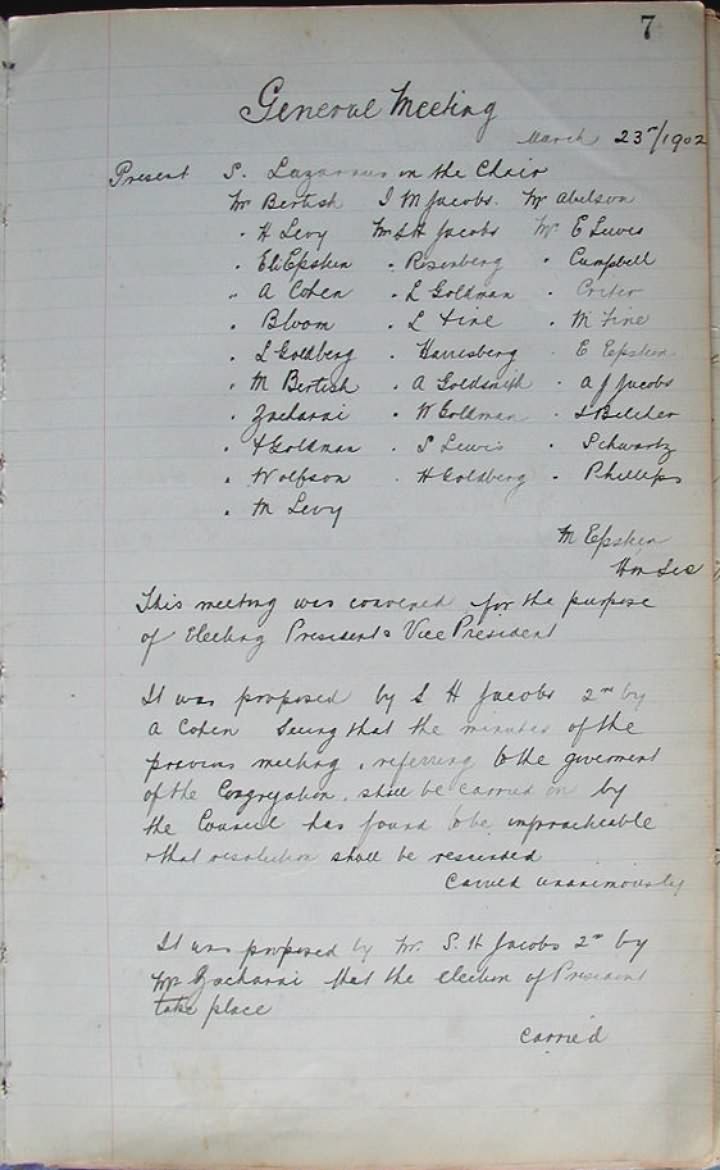 7
General Meeting
March 23rd/1902
Present S. Lazarus in the Chair
Mr Bertish I M Jacobs. Mr Abelson
" H Levy Mr S H Jacobs Mr E Lewis
" Eli Epstein " Rosenberg " Campbell
" A Cohen " L Goldman "
" Bloom " L Fine " M Fine
" L Goldberg " Harrisberg " E Epstein
" M Bertish " A Goldsmith " A J Jacobs
" Zacharai " W Goldman " Belcher
" Goldman " S Lewis " Schwartz
" Wolfson " H Goldberg " Phillips
" M Levy
M Epstein
Hon Sec
This meeting was convened for the purpose
of Electing President & Vice President
It was proposed by S H Jacobs 2nd by
A Cohen Seeing that the minutes of the
previous meeting, referring to the goverment
of the Congregation, shall be carried on by
the Council has found to be impracticable
that resolution shall be rescinded
Carried unanimously
It was proposed by Mr. S. H Jacobs 2nd by
Mr Zacharai that the election of President
take place
Carried